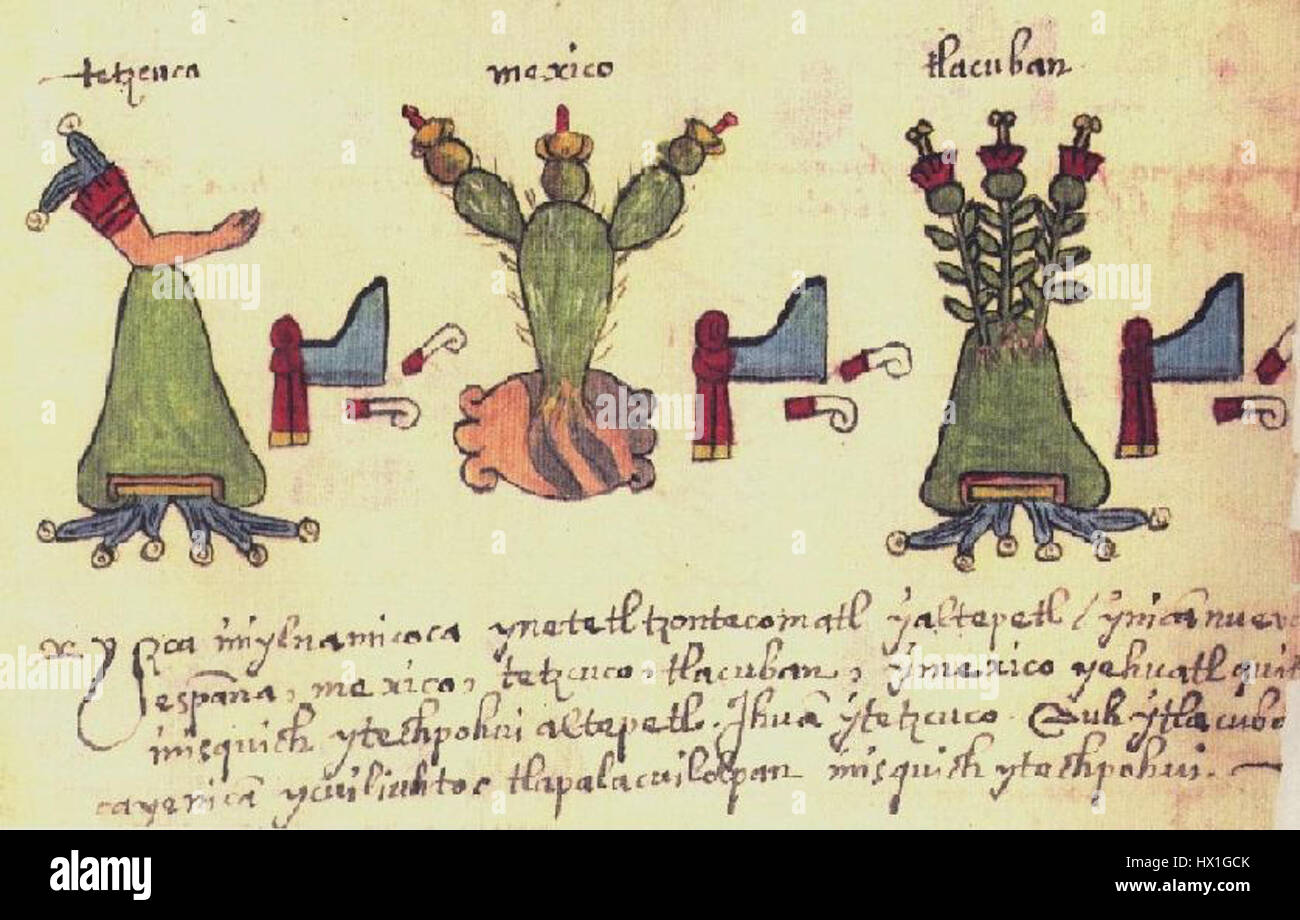 tetzcuca mexico tlacuban
ysca iniylnamicoca ynetetl tzontecomatl yaltepetl / ynicā nueva
españa, mexico, tetzcuco, tlacuban, ymexico yehuatl
inisquich ytechpohui altepetl. Ihuā ytetzcuco. Auh ytlacubā
cayenicā ycuiliuhtoc tlapalacuilolpan inisquich ytechpohui.
alamy
a
a
a
alamy
Image ID: HX1GCK
www.alamy.com